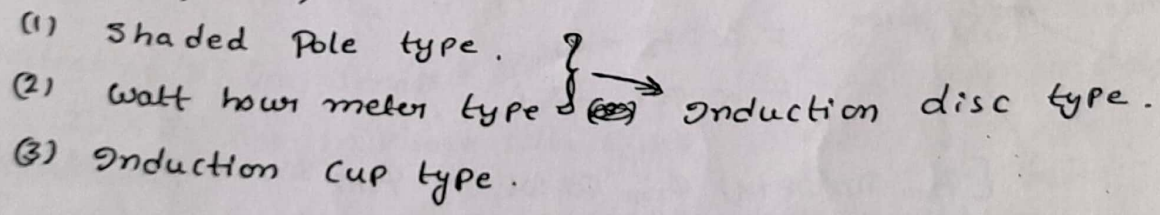 (1) Shaded Pole type.
(2) Watt hour meter type } → Induction disc type.
(3) Induction Cup type.